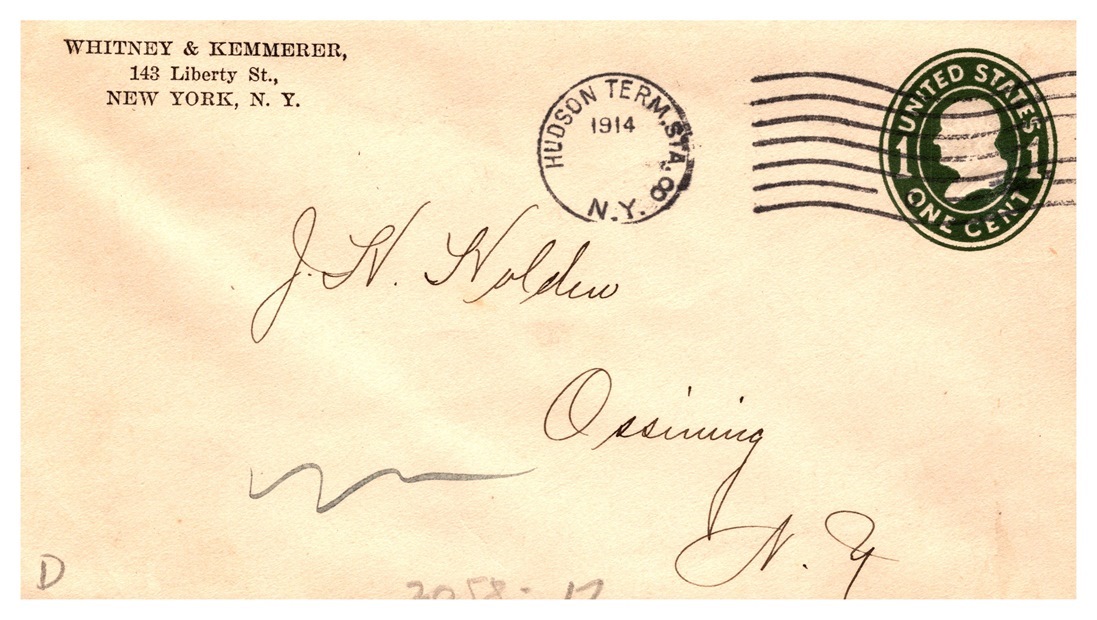 WHITNEY & KEMMERER,
143 Liberty St.,
NEW YORK, N. Y.
HUDSON TERM. STA. 8
1914
N.Y.
UNITED STATES
1 1
ONE CENT
J. H. Holden
Ossining
N. Y
D